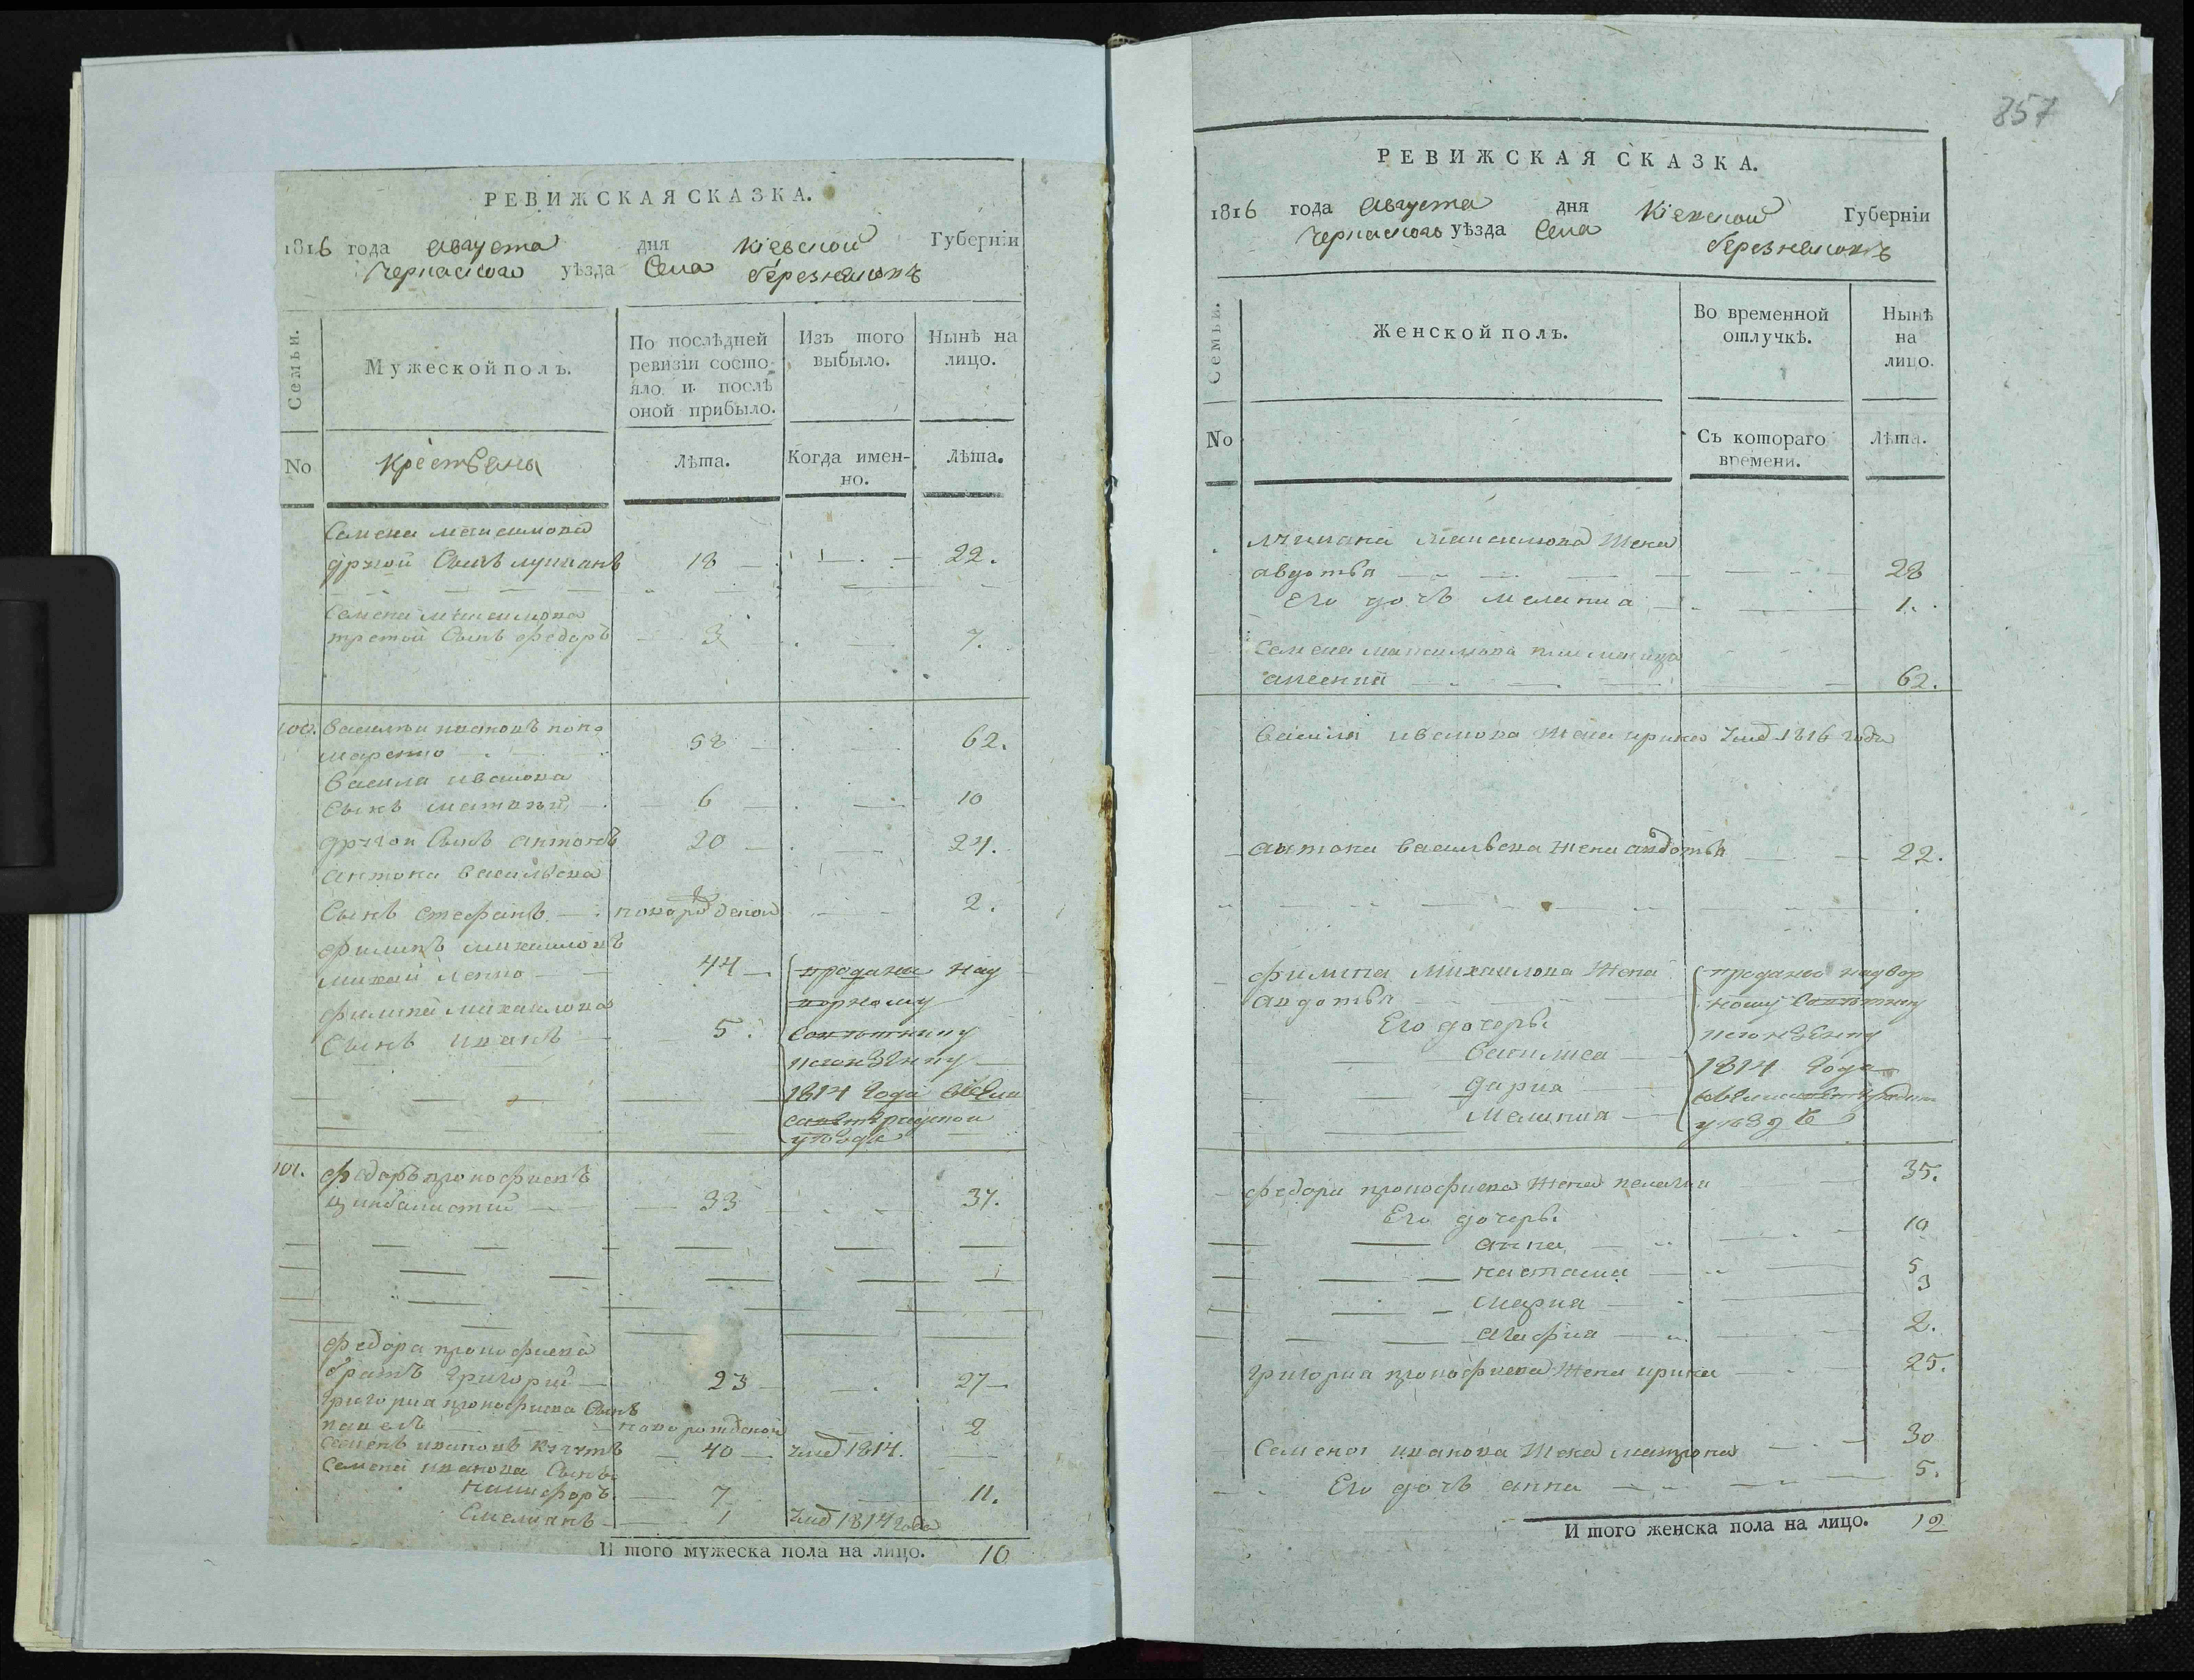 РЕВИЖСКАЯ СКАЗКА.
1816 года августа дня Кіевской Губерніи
Черкаского уѣзда Села березняковъ
Семьи.
Мужеской полъ.
По послѣдней
ревизіи состо-
яло и послѣ
оной прибыло.
Изъ того
выбыло.
Нынѣ на
лицо.
No
Крестьяны
Лѣта.
Когда имен-
но.
Лѣта.
Семена максимова
другой Сынъ лукианъ 18 22.
Семена максимова
третой Сынъ федоръ 3 7.
100. Василии ивановъ поно
маренко 58 62.
Васила иванова
Сынъ матвѣй 6 10
другой Сынъ антонъ 20 24.
антона васильева
Сынъ стефанъ новорожденой 2.
филипъ михаиловъ
михайленко 44 проданы над
ворному
филипа михаилова
Сынъ иванъ 5. Советнику
1814 года
уездѣ
101. федоръ прокофиевъ
цинбалистий 33 37.
федора прокофиева
братъ григорий 23 27
григориа прокофиева Сынъ
павелъ новорожденой 2
Семенъ ивановъ 40 умер 1814.
Семена иванова Сынъ
никифоръ 7 11.
Емелианъ 1 умер 1814 года
И того мужеска пола на лицо. 10
857
РЕВИЖСКАЯ СКАЗКА.
1816 года августа дня Кіевской Губерніи
Черкаского уѣзда Села березняковъ
Семьи.
Женской полъ.
Во временной
отлучкѣ.
Нынѣ
на
лицо.
No
Съ котораго
времени.
Лѣта.
лукиана максимова жена
авдотья 28
Его дочь мелания 1.
Семена максимова
62.
Василиа иванова жена ирина умер 1816 года
антона васильева жена авдотья 22.
филипа михаилова жена проданы надвор
авдотья ному Советнику
Его дочери
василиса
1814 года
дариа
мелания
уездѣ
федора прокофиева жена пелагия 35.
Его дочери
анна 10
настасиа 5
мариа 3
агафиа 2.
григориа прокофиева жена ирина 25.
Семена иванова жена матрона 30
Его дочь анна 5.
И того женска пола на лицо. 12